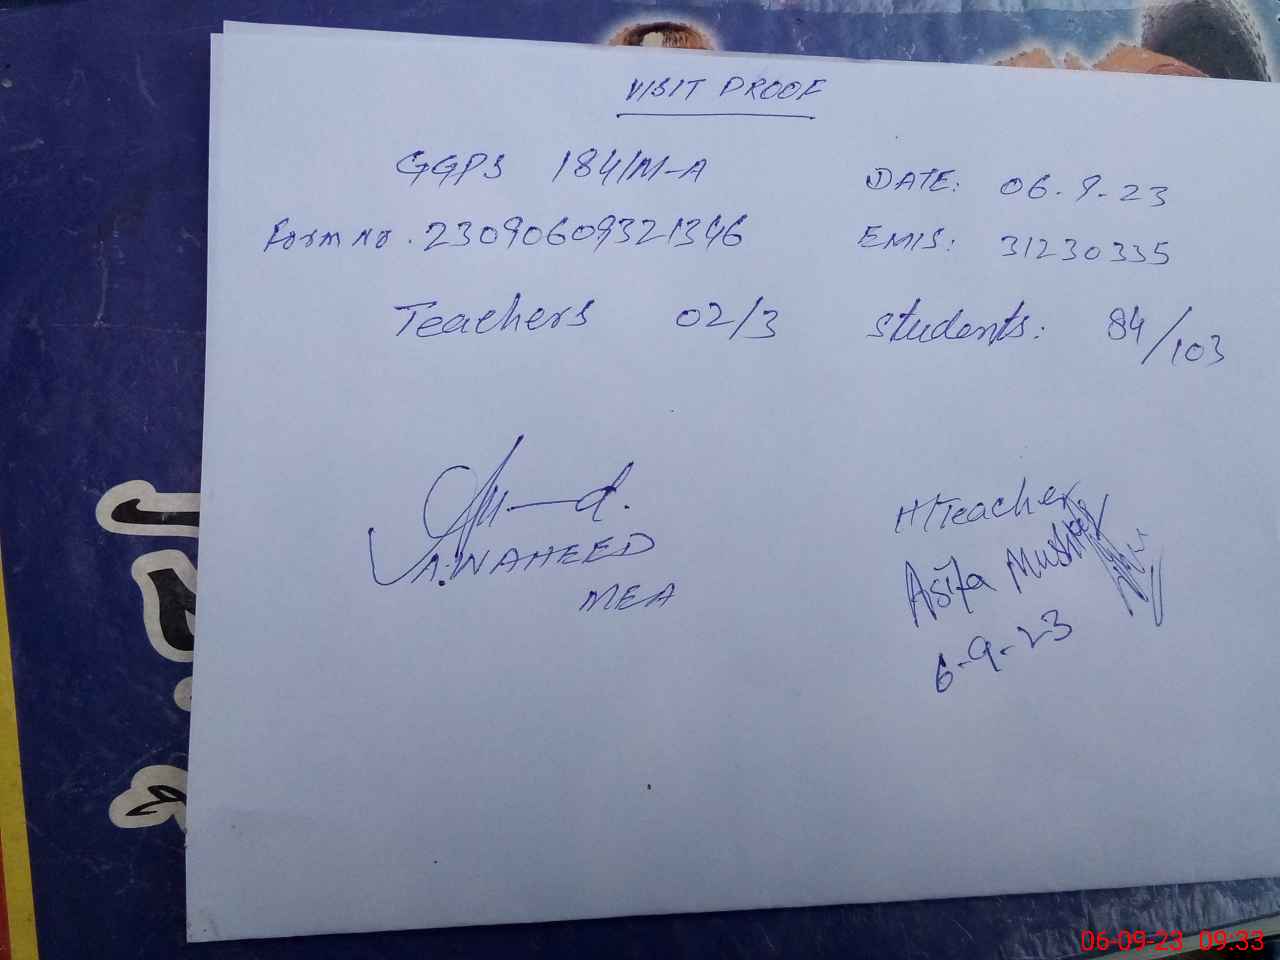 VISIT PROOF
GGPS 184/M-A DATE: 06.9.23
Form No. 23090609321346 EMIS: 31230335
Teachers 02/3 Students: 84/103
A.WAHEED
MEA
H/Teacher
Asifa
6-9-23
06-09-23 09:33